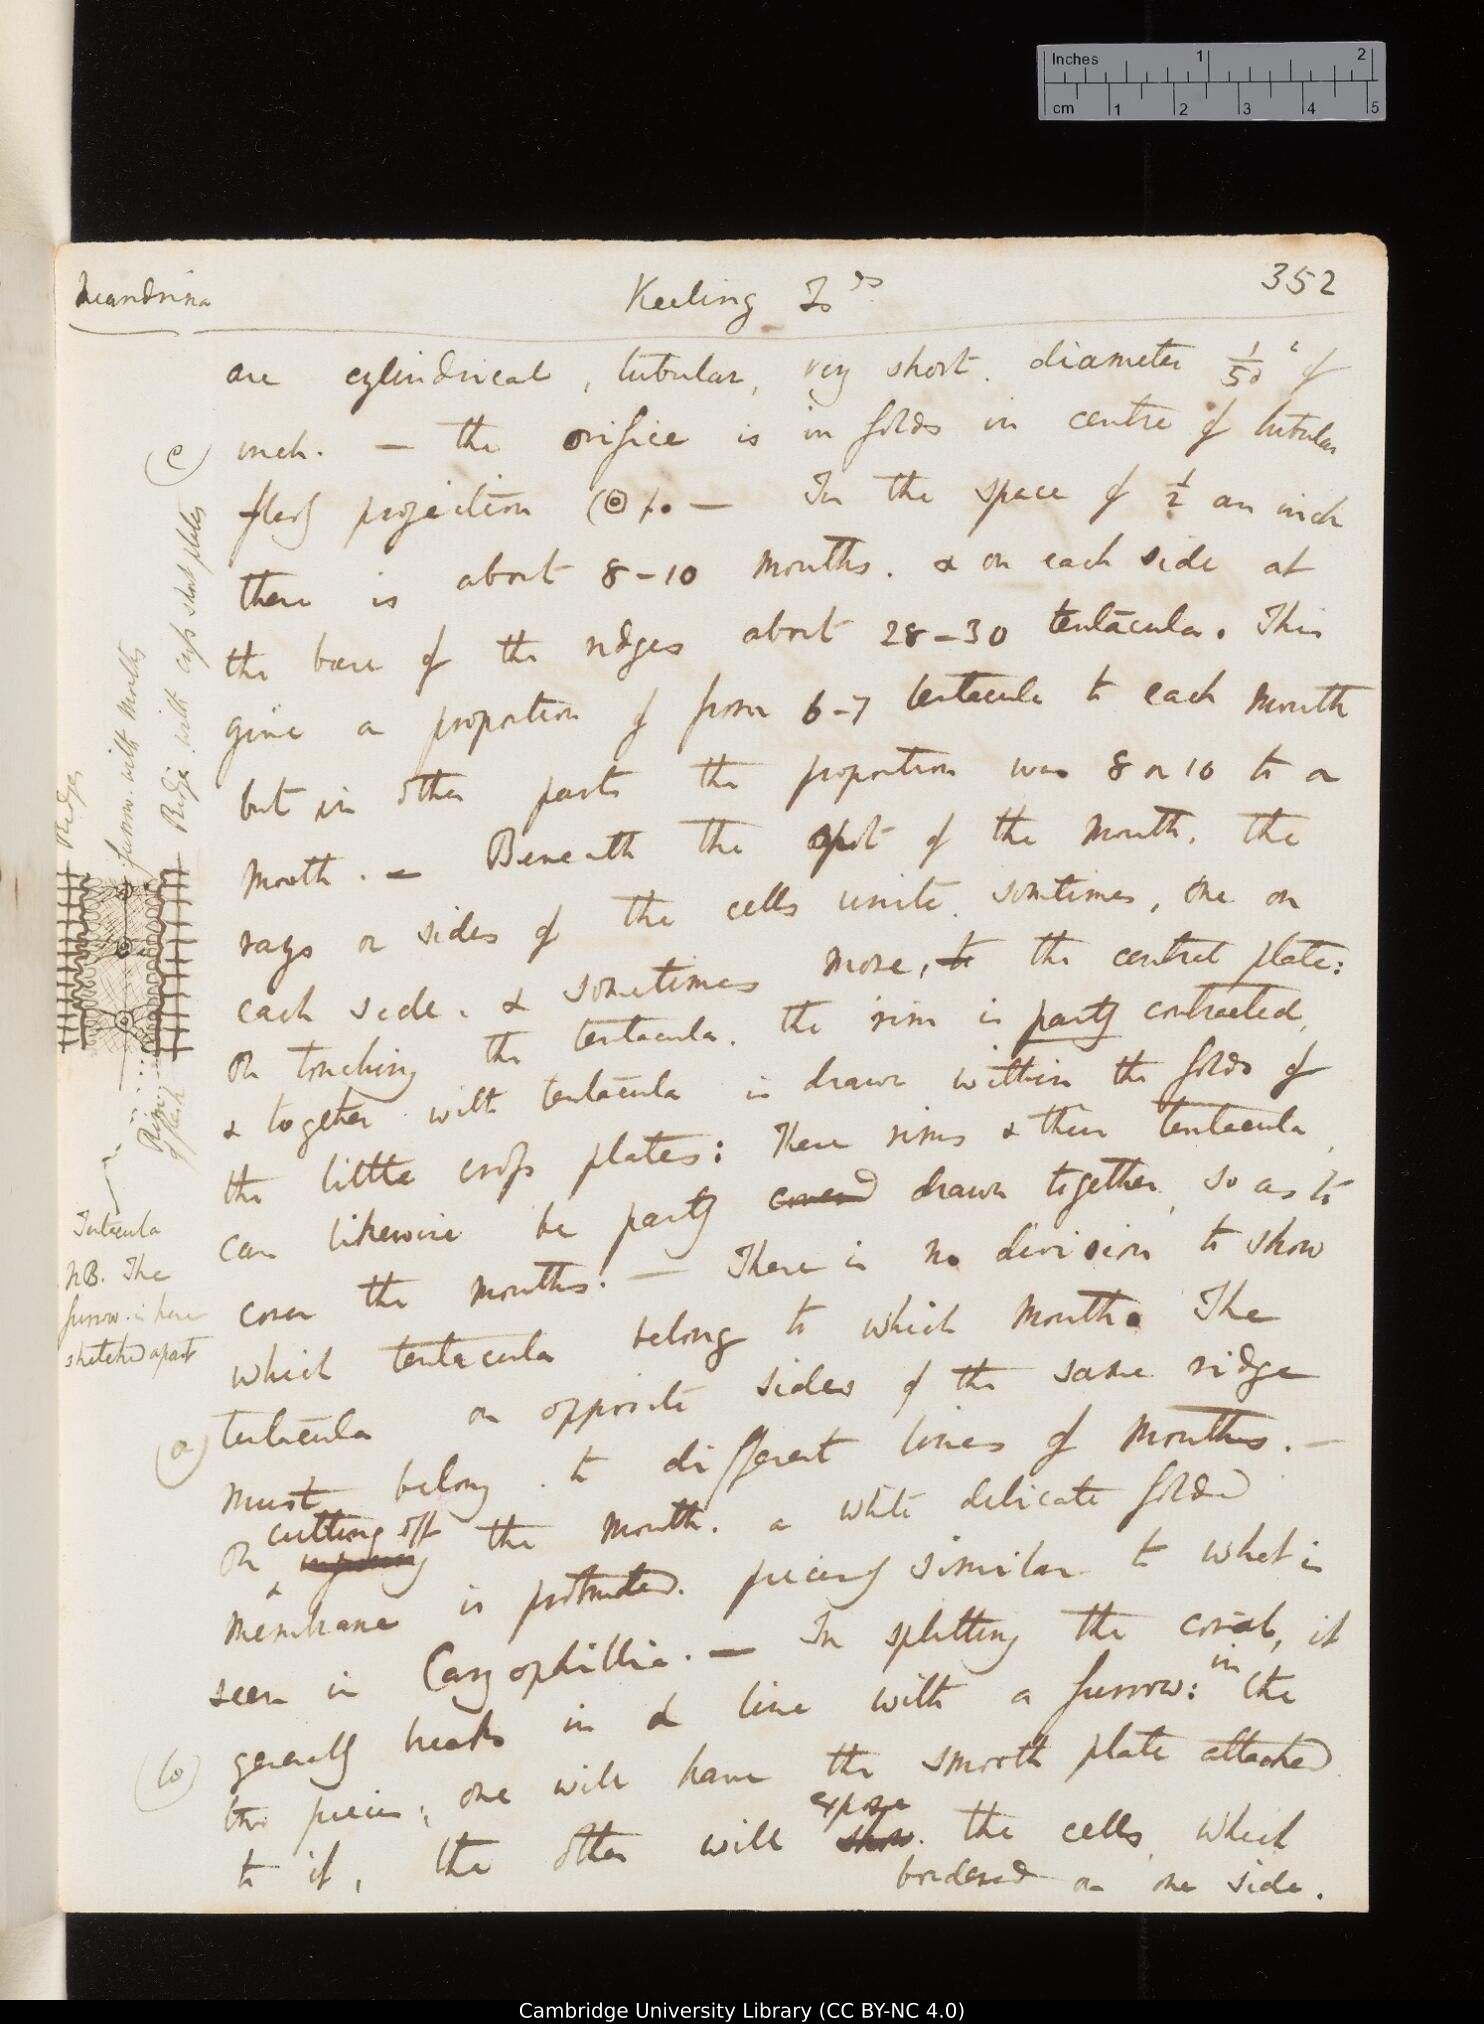 Inches 1 2
cm 1 2 3 4 5
352
Meandrina Keeling Is^ds
are cylindrical, tubular, very short. diameter 1/50^th of
(e) inch. — the orifice is in folds in centre of tubular
fleshy projection (◎). — In the space of 1/2 an inch
there is about 8-10 mouths. & on each side at
the base of the ridges about 28-30 tentacula. This
give a proportion of from 6-7 tentacula to each mouth
but in other parts the proportion was 8 or 10 to a
mouth. — Beneath the spot of the mouth, the
rays or sides of the cells unite sometimes, one on
each side. & sometimes more, to the central plate:
On touching the tentacula. the rim is partly contracted,
& together with tentacula is drawn within the folds of
the little cross plates: These rims & their tentacula,
can likewise be partly covered drawn together, so as to
cover the mouths. — There is no division to show
which tentacula belong to which mouth. The
(a) tentacula on opposite sides of the same ridge
must belong to different lines of mouths. —
cutting off
On the mouth. a white delicate folded
membrane is protruded. precisely similar to what is
seen in Caryophillia. — In splitting the coral, it
generally breaks in a line with a furrow: in the
(b) two pieces; one will have the smooth plate attached
expose
to it, the other will show the cells which
bordered on one side.
Ridge
furrow. with mouths
Ridge with cross short plates
Rim of flesh
Tentacula
NB. The
furrow is here
sketched apart
Cambridge University Library (CC BY-NC 4.0)